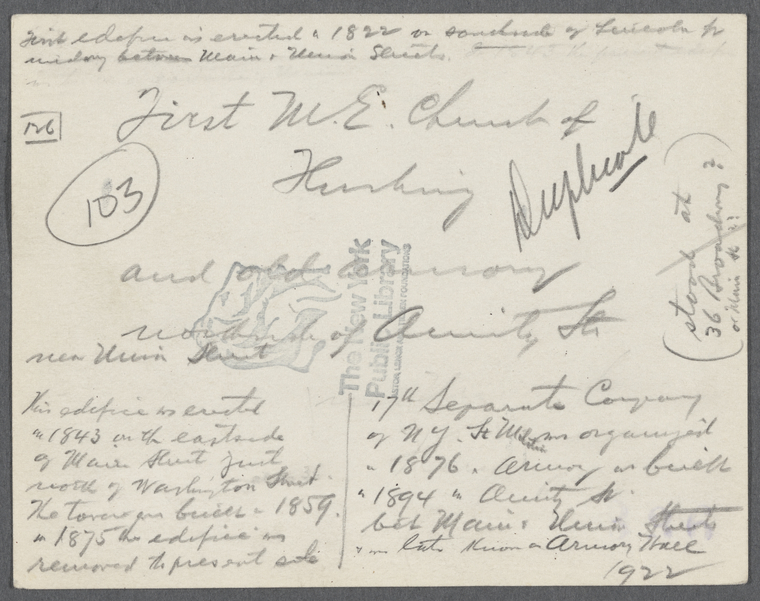 First edifice was erected in 1822 on southside of Lincoln
midway between Main & Union Streets.
126
103
First M.E. Church of
Flushing
Duplicate
(stood at
36 Broadway?
or Main St ??)
and old armory
northside of Amity St
near Union Street
The New York
Public Library
ASTOR LENOX AND TILDEN FOUNDATIONS
This edifice was erected
in 1843 on the eastside
of Main Street just
north of Washington Street.
The tower was built in 1859.
in 1875 the edifice was
removed to present site
17th Separate Company
of N.Y. St. Militia was organized
in 1876. Armory was built
in 1894 in Amity St.
bet Main & Union Streets
& was later known as Armory Hall
1922